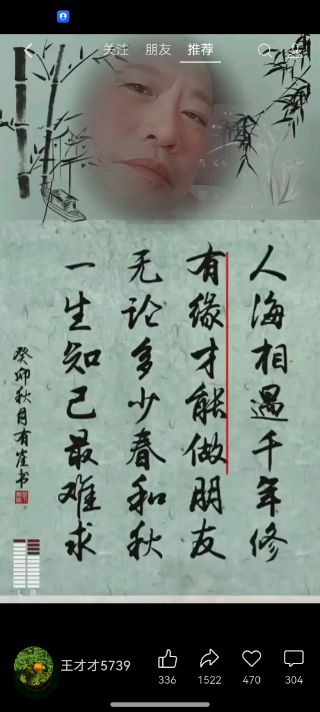 关注 朋友 推荐
人海相遇千年修
有缘才能做朋友
无论多少春和秋
一生知己最难求
癸卯秋月有崔书
L R
王才才5739
336
1522
470
304